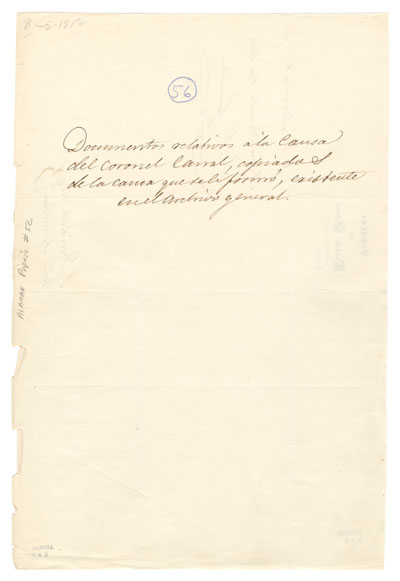 8-5-1812
56
Documentos relativos á la Causa
del Coronel Carral, copiados
de la Causa que se le formó, existente
en el Archivo general.
ALAMAN Papers #52